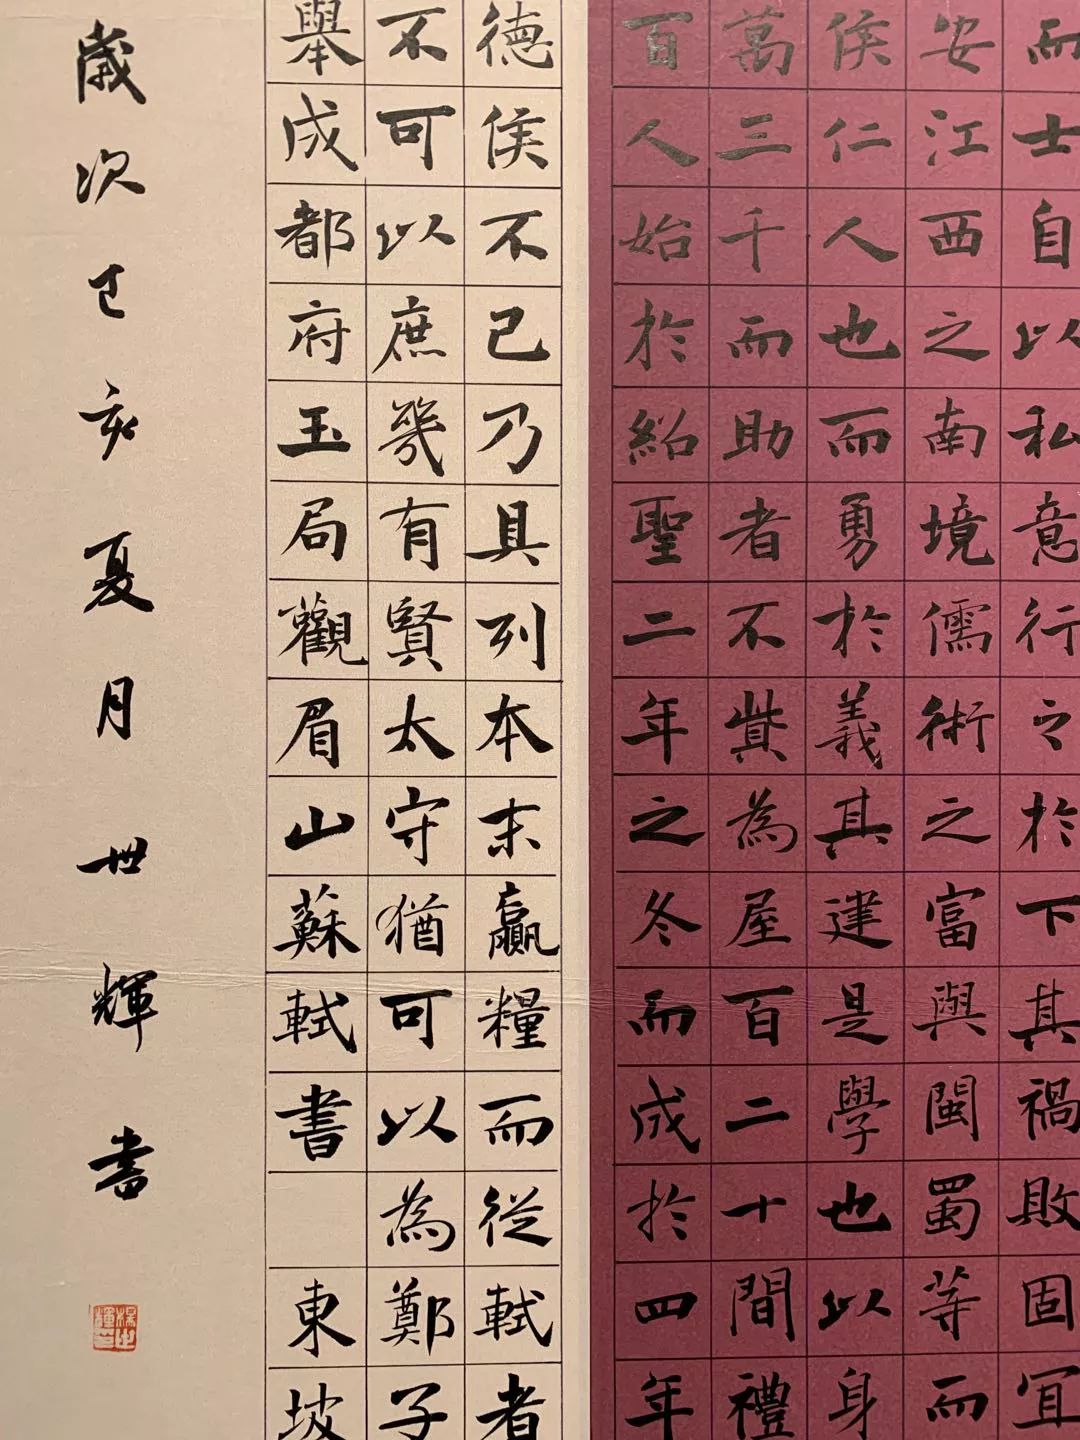 而士自以私意行之於下其禍敗固宜
安江西之南境儒術之富與閩蜀等而
侯仁人也而勇於義其建是學也以身
萬三千而助者不貲為屋百二十間禮
百人始於紹聖二年之冬而成於四年
德侯不已乃具列本末贏糧而從軾者
不可以庶幾有賢太守猶可以為鄭子
舉成都府玉局觀眉山蘇軾書 東坡
歲次己亥夏月世輝書
楊世輝印